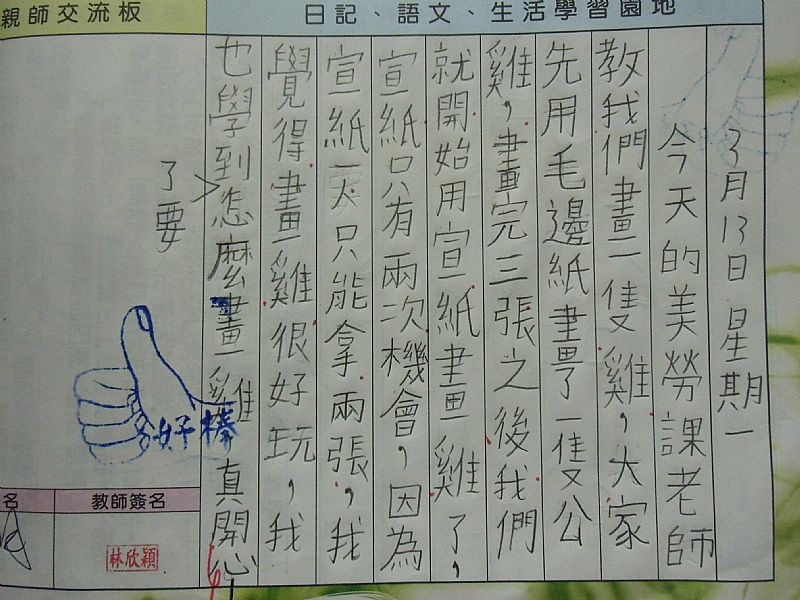 日記、語文、生活學習園地
親師交流板
3月13日星期一
今天的美勞課老師
教我們畫一隻雞，大家
先用毛邊紙畫了一隻公
雞，畫完三張之後我們
就開始用宣紙畫雞了，
宣紙只有兩次機會，因為
宣紙一人只能拿兩張，我
覺得畫雞很好玩，我
也學到怎麼畫雞真開心
了要
好棒
教師簽名
名
林欣穎